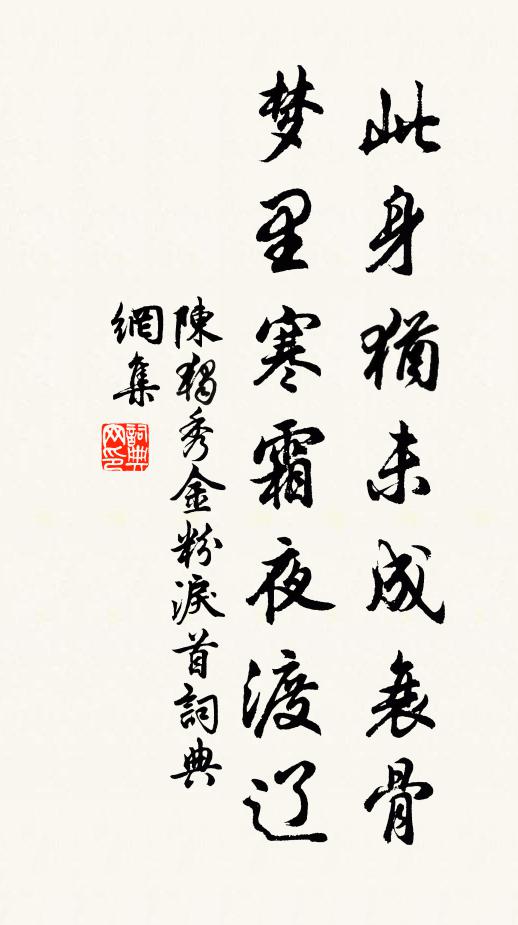 此身猶未成衰骨
梦里寒霜夜渡辽
陳獨秀金粉淚首詞典
網集
詞典
网印